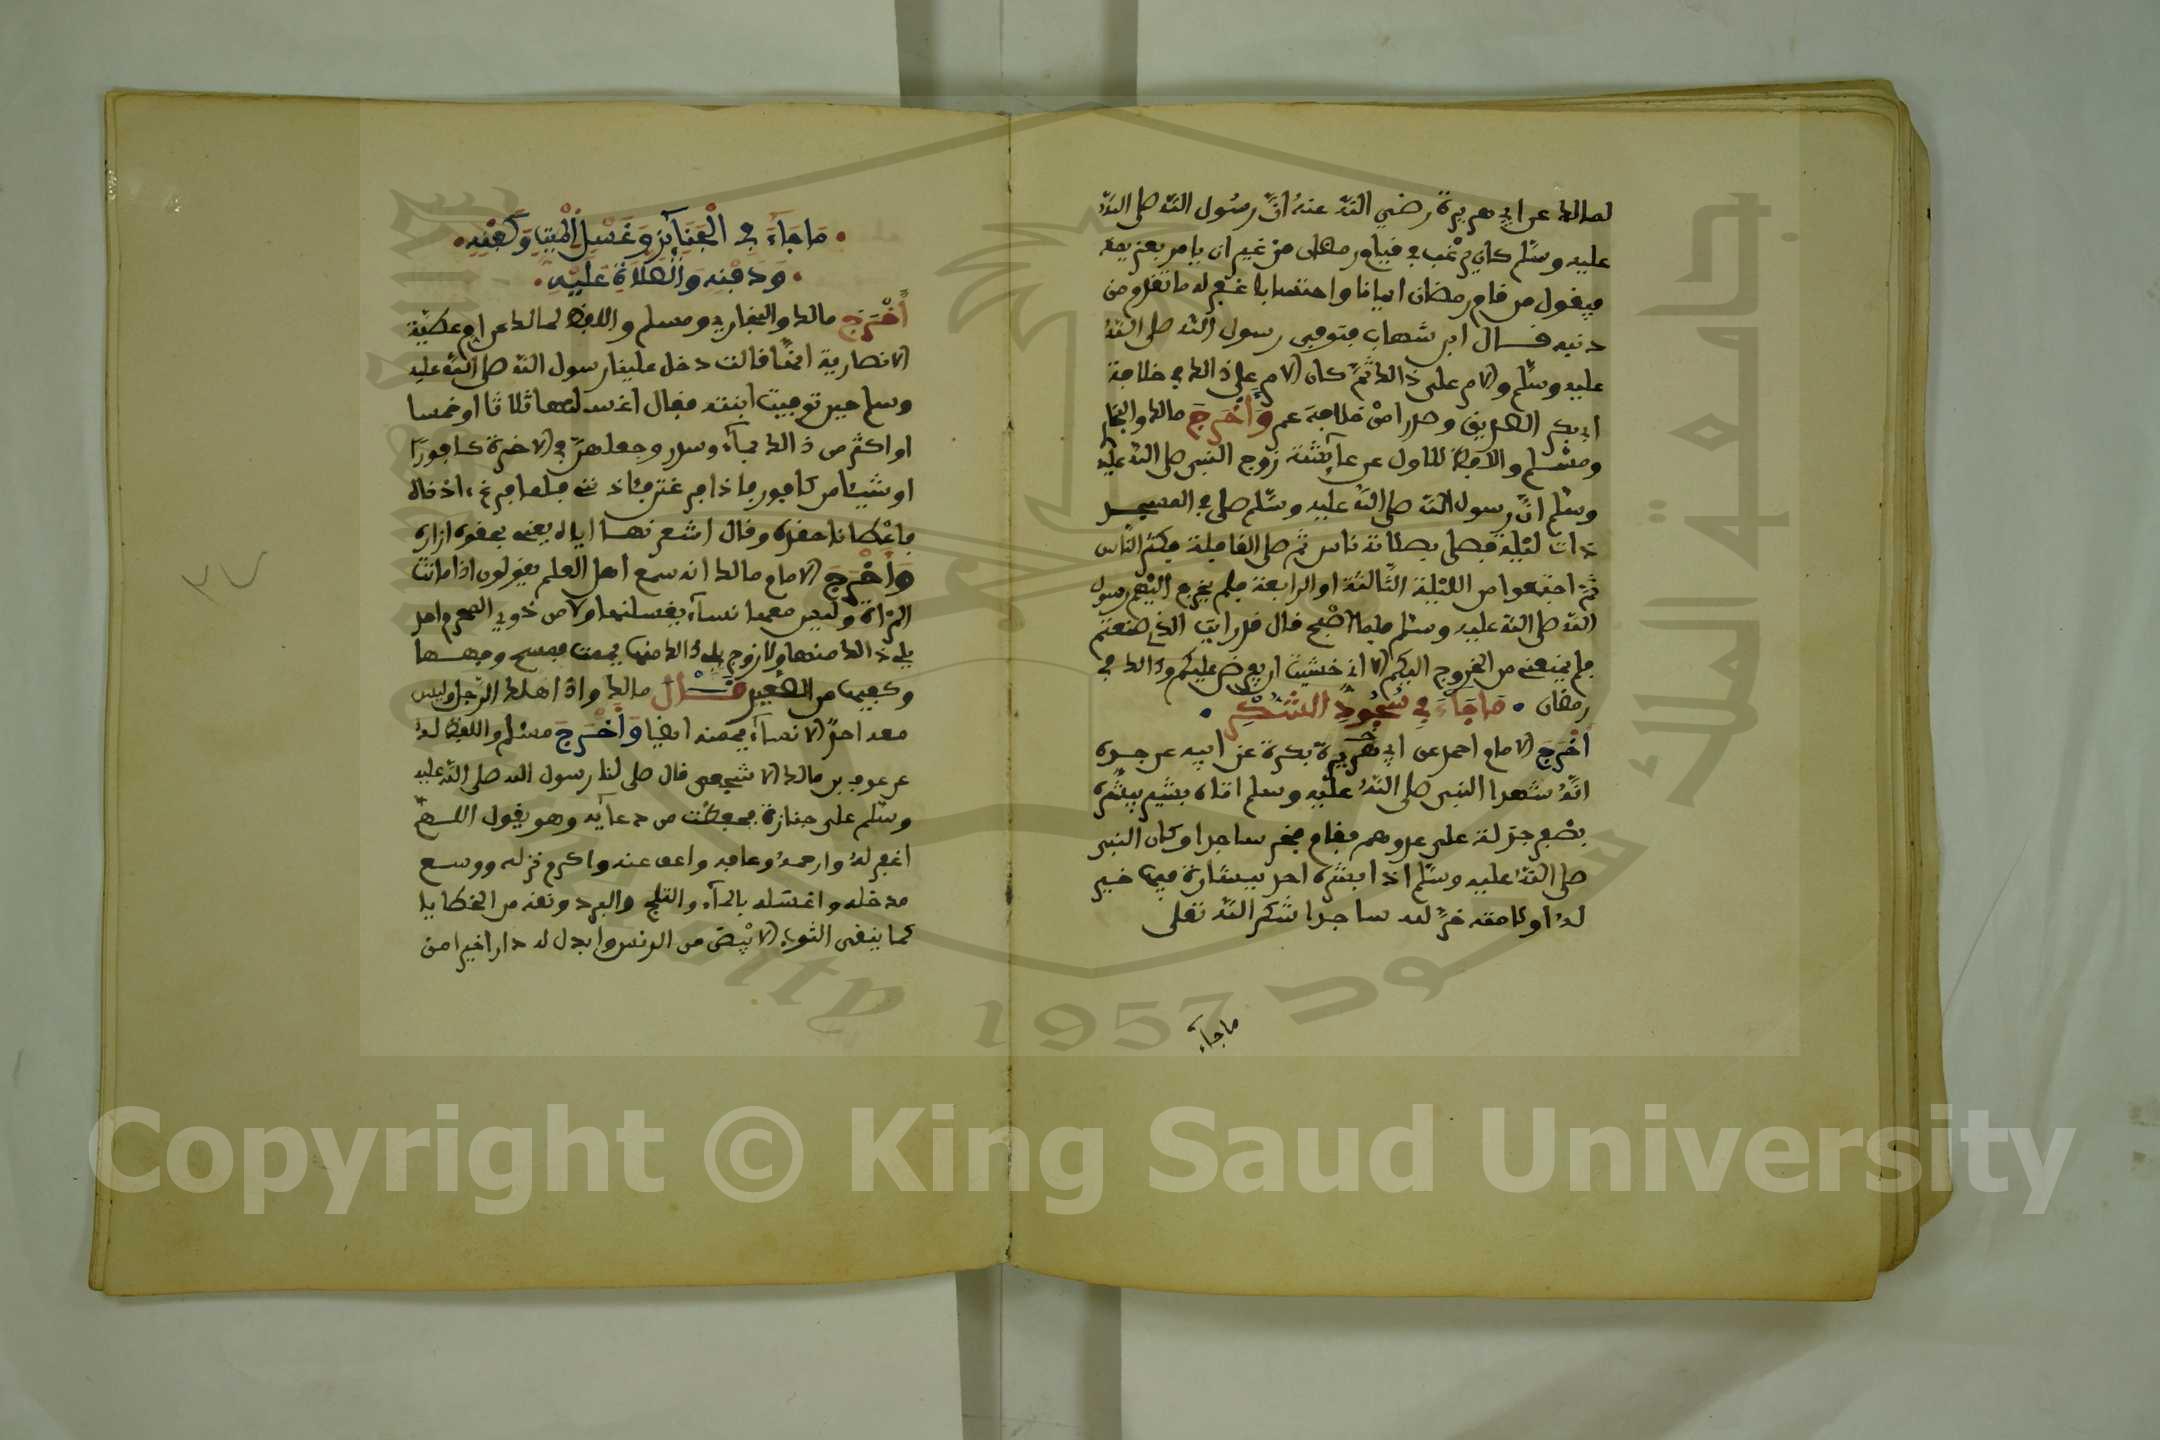 لمالك عن ابي هريرة رضي الله عنه انّ رسول الله صلى الله
عليه وسلّم كان يرغب في قيام رمضان من غير ان يامر بعزيمة
فيقول من قام رمضان ايمانا واحتسابا غفر له ما تقدم من
ذنبه قال ابن شهاب فتوفي رسول الله صلى الله
عليه وسلّم والامر على ذالك ثمّ كان الامر على ذالك في خلافة
ابي بكر الصديق وصدرا من خلافة عمر وأخرج مالك والبخار
ومسلم واللفظ للاول عن عآئشة زوج النبي صلى الله عليه
وسلم انّ رسول الله صلى الله عليه وسلّم صلى في المسجد
ذات ليلة فصلى بصلاته ناس ثم صلى القابلة فكثر النّاس
ثمّ اجتمعوا من الليلة الثّالثة او الرابعة فلم يخرج اليهم رسول
الله صلى الله عليه وسلم فلما اصبح قال قد رايت الذي صنعتم
فلم يمنعني من الخروج اليكم الا اني خشيت ان يفرض عليكم وذالك في
رمضان • مَا جَآءَ فِي سُجُودِ الشُّكْرِ •
أخرَجَ الامام احمد عن ابي بكرة عن ابيه عن جده
انّه شهد النبي صلى الله عليه وسلم اتاه بشير يبشّره
بظفر جند له على عدوهم فقام فخر ساجدا وكان النبي
صلى الله عليه وسلّم اذا بشره احد ببشارة فيها خير
له او لامته خرّ لله ساجدا شكر الله تعلى
ما جآء
• مَا جَآءَ فِي الْجَنَآئِزِ وَغَسْلِ الْمَيِّتِ وَكَفْنِهِ •
• وَدَفْنِهِ وَالصَّلَاةِ عَلَيْهِ •
أَخْرَجَ مالك والبخاري ومسلم واللفظ لمالك عن ام عطيّة
الانصارية انها قالت دخل علينا رسول الله صلى الله عليه
وسلم حين توفيت ابنته فقال اغسلنها ثلاثا او خمسا
او اكثر من ذالك بمآء وسدر واجعلن في الاخرة كافورا
او شيئا من كافور فاذا فرغتن فئاذنني فلما فرغنا ءاذناه
فاعْطانا حقوه وقال اشعرنها اياه يعني بحقوه ازاره
وَأَخْرَجَ الامام مالك انه سمع أهل العلم يقولون اذا ماتت
المرأة وليس معها نسآء يغسلنها ولا من ذوي المحرم احد
يلي ذالك منها ولا زوج يلي ذالك منها يممت فمسح وجهها
وكفيها من الصعيد قَال مالك واذا هلك الرّجل وليس
معه احدٌ الا نسآء يممنه ايضا وَأَخْرَجَ مسلم واللفظ له
عن عوف بن مالك الاشجعي قال صلى لنا رسول الله صلى الله عليه
وسلّم على جنازة فحفظت من دعآئه وهو يقول اللهمّ
اغفر له وارحمه وعافه واعف عنه واكرم نزله ووسع
مدخله واغسله بالمآء والثلج والبرد ونقه من الخطايا
كما ينقى الثوب الابْيض من الدنس وابدل له دارا خيرا من
Copyright © King Saud University
1957